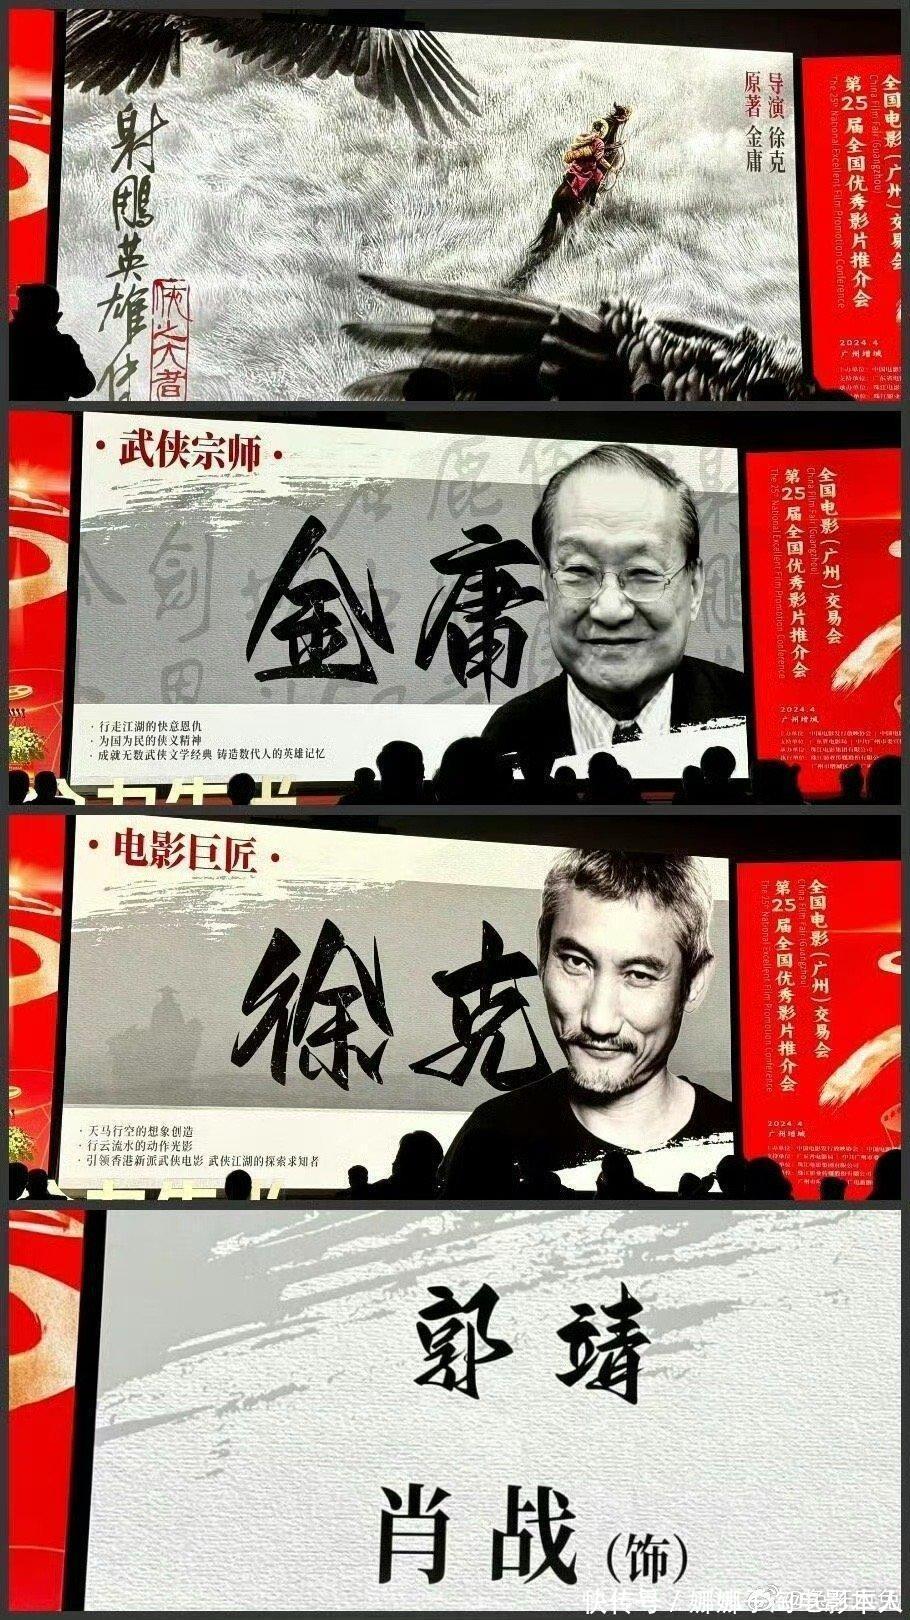 射雕英雄传
侠之大者
导演 徐克
原著 金庸
全国电影(广州)交易会
China Film Fair (Guangzhou)
第25届全国优秀影片推介会
The 25th National Excellent Film Promotion Conference
2024.4
广州增城
·武侠宗师·
金庸
·行走江湖的快意恩仇
为国为民的侠义精神
成就无数武侠文学经典 铸造数代人的英雄记忆
全国电影(广州)交易会
China Film Fair (Guangzhou)
第25届全国优秀影片推介会
The 25th National Excellent Film Promotion Conference
2024.4
广州增城
·电影巨匠·
徐克
·天马行空的想象创造
·行云流水的动作光影
·引领香港新派武侠电影 武侠江湖的探索求知者
全国电影(广州)交易会
China Film Fair (Guangzhou)
第25届全国优秀影片推介会
The 25th National Excellent Film Promotion Conference
2024.4
广州增城
郭靖
肖战(饰)